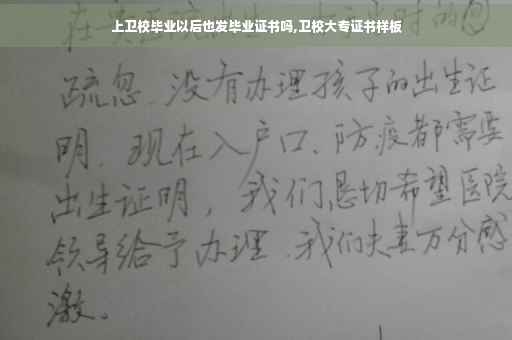 上卫校毕业以后也发毕业证书吗,卫校大专证书样板
时的
疏忽、没有办理孩子的出生证
明、现在入户口、防疫都需要
出生证明，我们恳切希望医院
领导给予办理、我们夫妻万分感
激。